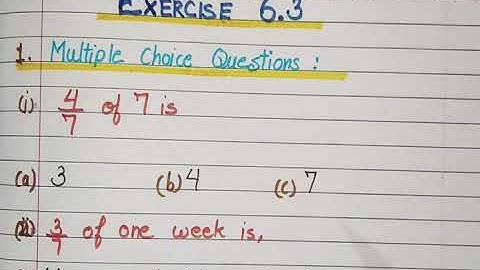 EXERCISE 6.3
1. Multiple Choice Questions :
(i) 4/7 of 7 is
(a) 3 (b) 4 (c) 7
(ii) 3/7 of one week is,